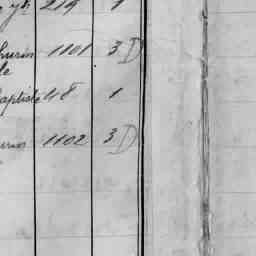 219 1
hurin 1101 3 D
le
aptiste 48 1
urin 1102 3 D